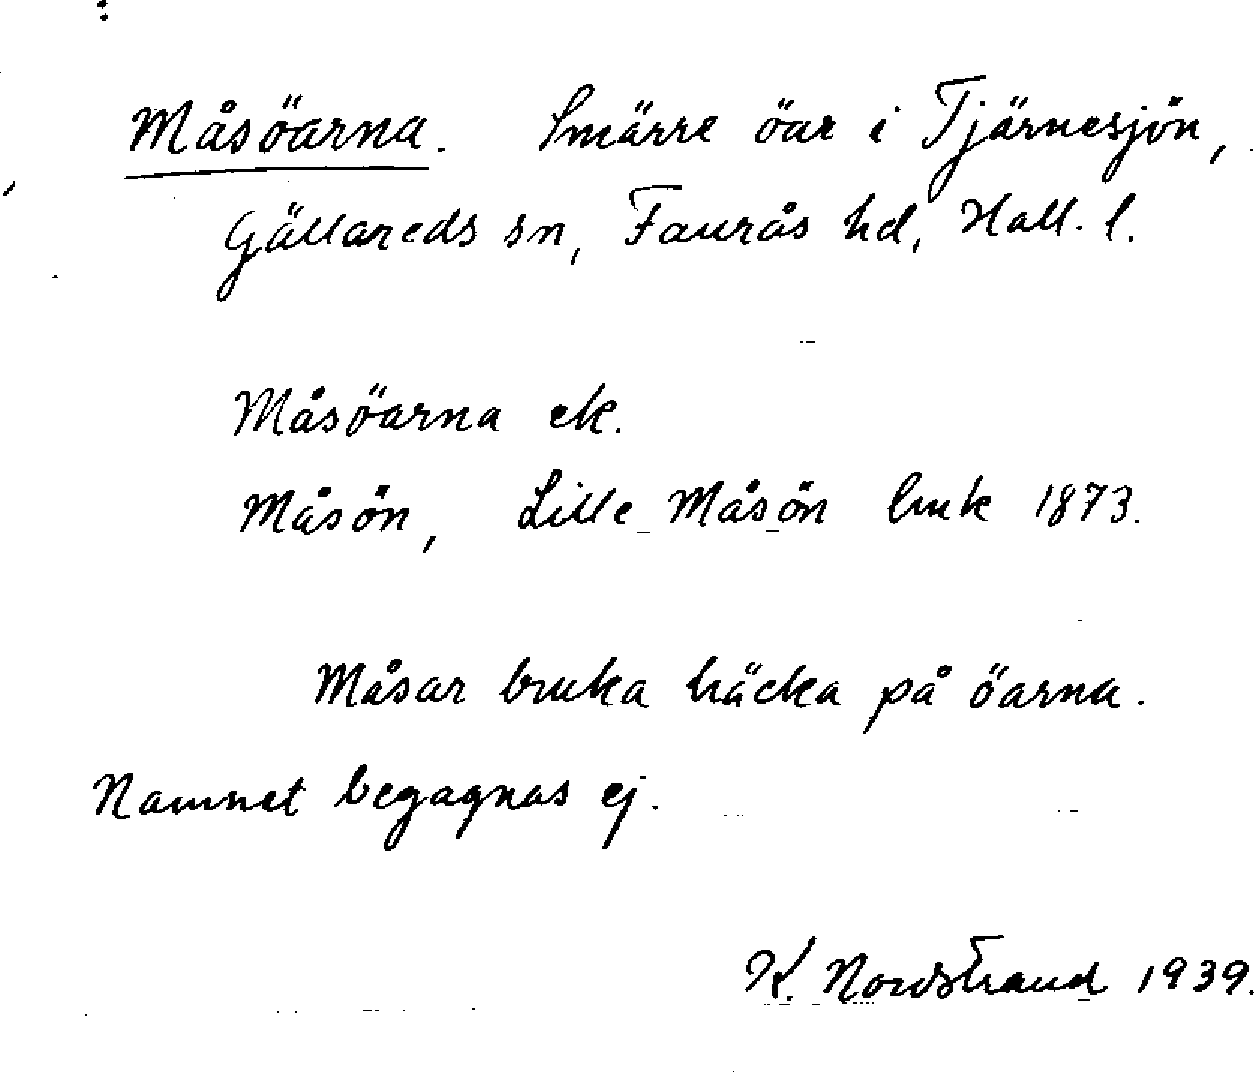 Måsöarna. Smärre öar i Tjärnesjön,
Gällareds sn, Faurås hd, Hall. l.
Måsöarna ek.
Måsön, Lille Måsön bruk 1873.
Måsar bruka häcka på öarna.
Namnet begagnas ej.
K. Nordstrand 1939.